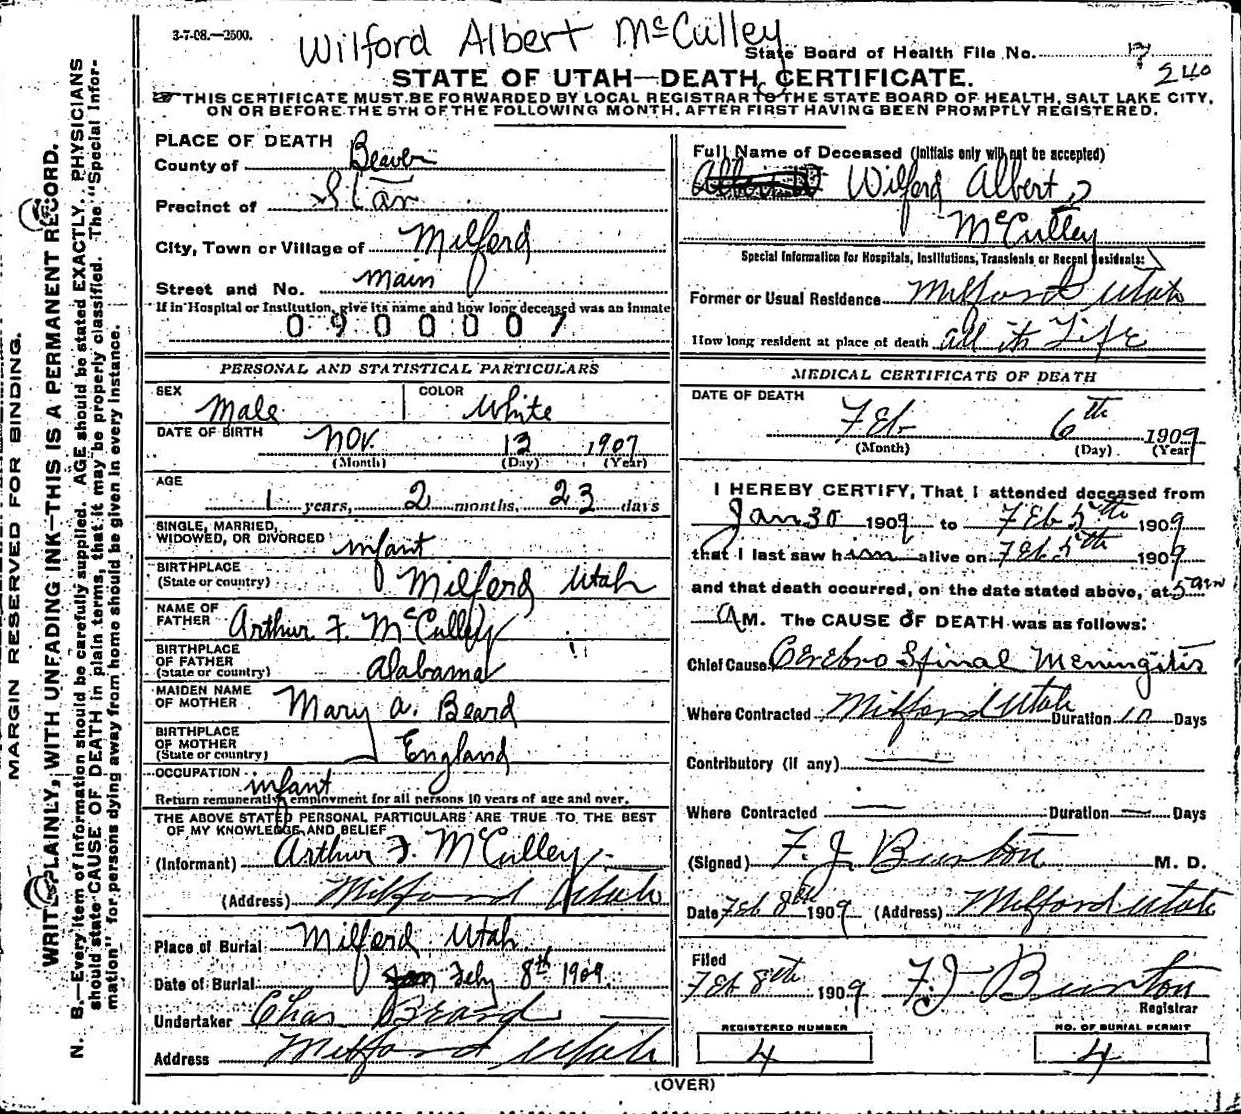 3-7-08.—2500.
Wilford Albert McCulley
State Board of Health File No. 7
240
STATE OF UTAH—DEATH CERTIFICATE.
THIS CERTIFICATE MUST BE FORWARDED BY LOCAL REGISTRAR TO THE STATE BOARD OF HEALTH, SALT LAKE CITY,
ON OR BEFORE THE 5TH OF THE FOLLOWING MONTH, AFTER FIRST HAVING BEEN PROMPTLY REGISTERED.
MARGIN RESERVED FOR BINDING.
WRITE PLAINLY, WITH UNFADING INK—THIS IS A PERMANENT RECORD.
N. B.—Every item of information should be carefully supplied. AGE should be stated EXACTLY. PHYSICIANS
should state CAUSE OF DEATH in plain terms, that it may be properly classified. The "Special Infor-
mation" for persons dying away from home should be given in every instance.
PLACE OF DEATH
County of Beaver
Precinct of Star
City, Town or Village of Milford
Street and No. Main
If in Hospital or Institution, give its name and how long deceased was an inmate
0900007
PERSONAL AND STATISTICAL PARTICULARS
SEX Male COLOR White
DATE OF BIRTH Nov. 13 1907
(Month) (Day) (Year)
AGE
1 years, 2 months, 23 days
SINGLE, MARRIED,
WIDOWED, OR DIVORCED infant
BIRTHPLACE
(State or country) Milford Utah
NAME OF
FATHER Arthur F. McCulley
BIRTHPLACE
OF FATHER
(State or country) Alabama
MAIDEN NAME
OF MOTHER Mary A. Beard
BIRTHPLACE
OF MOTHER
(State or country) England
OCCUPATION infant
Return remunerative employment for all persons 10 years of age and over.
THE ABOVE STATED PERSONAL PARTICULARS ARE TRUE TO THE BEST
OF MY KNOWLEDGE AND BELIEF
(Informant) Arthur F. McCulley
(Address) Milford Utah
Place of Burial Milford Utah
Date of Burial Feby 8th 1909.
Undertaker Chas Beard
Address Milford Utah
Full Name of Deceased (Initials only will not be accepted)
Wilford Albert
McCulley
Special Information for Hospitals, Institutions, Transients or Recent Residents:
Former or Usual Residence Milford Utah
How long resident at place of death all its Life
MEDICAL CERTIFICATE OF DEATH
DATE OF DEATH
Feb 6th 1909
(Month) (Day) (Year)
I HEREBY CERTIFY, That I attended deceased from
Jan 30 1909 to Feb 5th 1909
that I last saw him alive on Feb 5th 1909
and that death occurred, on the date stated above, at 5 am
A M. The CAUSE OF DEATH was as follows:
Chief Cause Cerebro Spinal Meningitis
Where Contracted Milford Utah Duration 10 Days
Contributory (if any)
Where Contracted — Duration — Days
(Signed) F. J. Burton M. D.
Date Feb 8th 1909 (Address) Milford Utah
Filed
Feb 8th 1909 F. J. Burton
Registrar
REGISTERED NUMBER
4
NO. OF BURIAL PERMIT
4
(OVER)